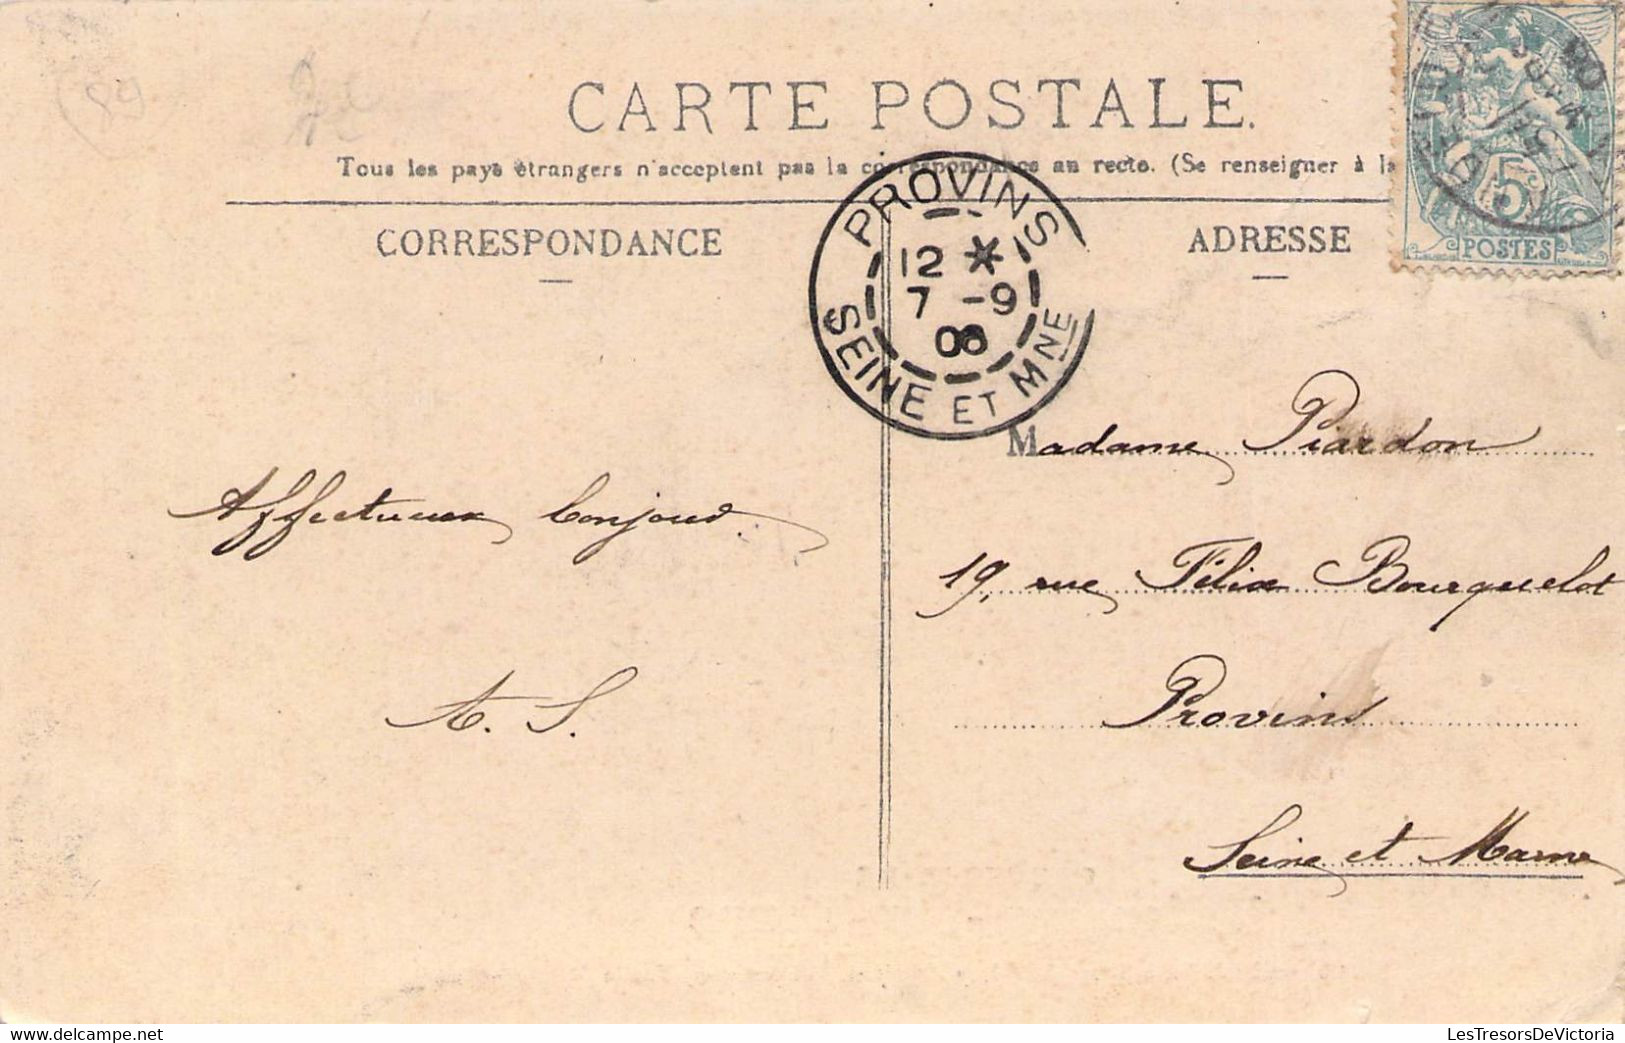 CARTE POSTALE.
Tous les pays étrangers n'acceptent pas la correspondance au recto. (Se renseigner à la
CORRESPONDANCE
ADRESSE
5
POSTES
PROVINS
12 *
7 -9
06
SEINE ET MNE
Affectueux bonjour.
A. S.
Madame Piardon
19, rue Félix Bourquelot
Provins
Seine et Marne
89
LesTresorsDeVictoria